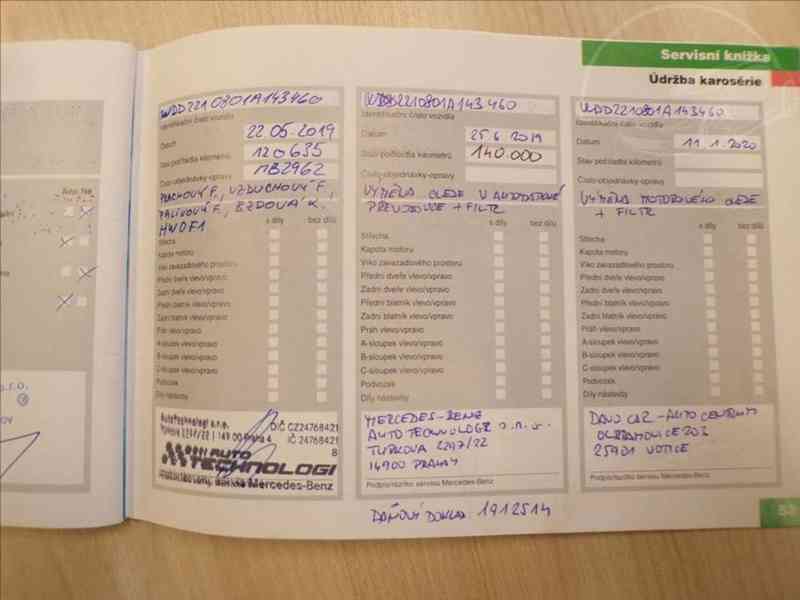 Servisní knížka
Údržba karosérie
Ano Ne
s.r.o.
WDD2210801A143460
Identifikační číslo vozidla
22.05.2019
Datum
120635
Stav počítadla kilometrů
MB2962
Číslo objednávky-opravy
PRACHOVÝ F., VZDUCHOVÝ F.,
PALIVOVÝ F., BRZDOVÁ K.
HWOF1
s díly bez dílů
Střecha
Kapota motoru
Víko zavazadlového prostoru
Přední dveře vlevo/vpravo
Zadní dveře vlevo/vpravo
Přední blatník vlevo/vpravo
Zadní blatník vlevo/vpravo
Práh vlevo/vpravo
A-sloupek vlevo/vpravo
B-sloupek vlevo/vpravo
C-sloupek vlevo/vpravo
Podvozek
Díly nástavby
AutoTechnologi s.r.o.
Türkova 2297/22 | 149 00 Praha 4
DIČ CZ24768421
IČ 24768421
8
AUTO
TECHNOLOGI
Mercedes-Benz
WDD2210801A143460
Identifikační číslo vozidla
Datum
25.6.2019
Stav počítadla kilometrů
140.000
Číslo objednávky-opravy
VÝMĚNA OLEJE V AUTOMATOVÉ
PŘEVODOVCE + FILTR
s díly bez dílů
Střecha
Kapota motoru
Víko zavazadlového prostoru
Přední dveře vlevo/vpravo
Zadní dveře vlevo/vpravo
Přední blatník vlevo/vpravo
Zadní blatník vlevo/vpravo
Práh vlevo/vpravo
A-sloupek vlevo/vpravo
B-sloupek vlevo/vpravo
C-sloupek vlevo/vpravo
Podvozek
Díly nástavby
MERCEDES-BENZ
AUTO TECHNOLOGI s.r.o.
TURKOVA 2297/22
14900 PRAHA 4
Podpis/razítko servisu Mercedes-Benz
DAŇOVÝ DOKLAD: 1912514
WDD2210801A143460
Identifikační číslo vozidla
Datum
11.1.2020
Stav počítadla kilometrů
Číslo objednávky-opravy
VÝMĚNA MOTOROVÉHO OLEJE
+ FILTR
s díly bez dílů
Střecha
Kapota motoru
Víko zavazadlového prostoru
Přední dveře vlevo/vpravo
Zadní dveře vlevo/vpravo
Přední blatník vlevo/vpravo
Zadní blatník vlevo/vpravo
Práh vlevo/vpravo
A-sloupek vlevo/vpravo
B-sloupek vlevo/vpravo
C-sloupek vlevo/vpravo
Podvozek
Díly nástavby
CAR-AUTO CENTRUM
OLBRAMOVICE 203
25901 VOTICE
Podpis/razítko servisu Mercedes-Benz